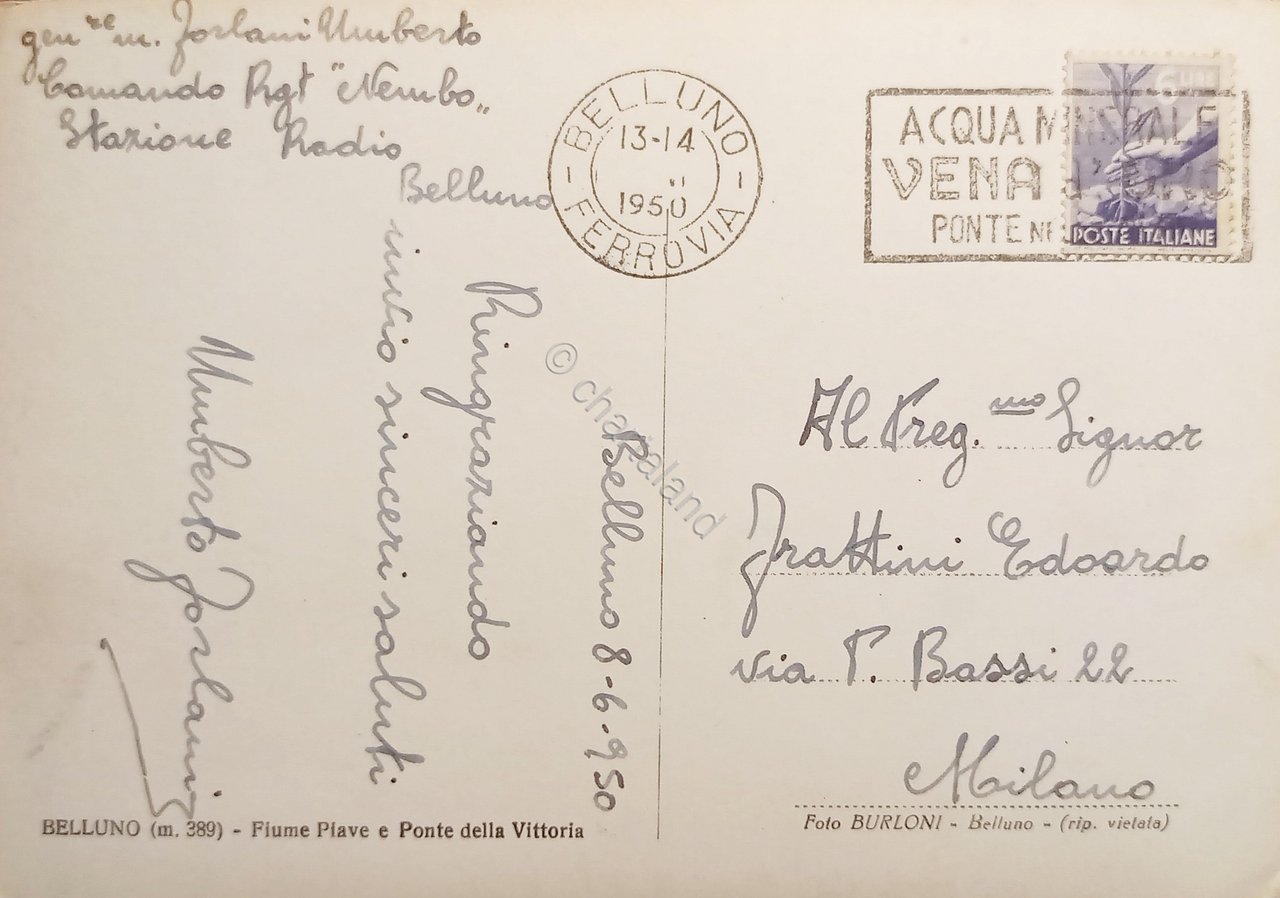 gen.re m. Forlani Umberto
Comando Rgt "Nembo"
Stazione Radio
Belluno
BELLUNO
13-14
1950
FERROVIA
ACQUA MINERALE
VENA D'ORO
PONTE NE
6 LIRE
POSTE ITALIANE
Belluno 8-6-950
Ringraziando
invio sinceri saluti
Umberto Forlani
Al Preg.mo Signor
Frattini Edoardo
via P. Bassi 22
Milano
© chartaland
BELLUNO (m. 389) - Fiume Piave e Ponte della Vittoria
Foto BURLONI - Belluno - (rip. vietata)